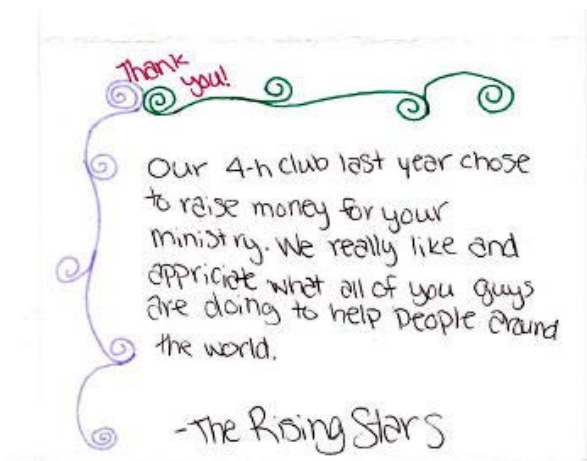 Thank
you!
Our 4-h club last year chose
to raise money for your
ministry. We really like and
appriciate what all of you guys
are doing to help people around
the world.
-The Rising Stars